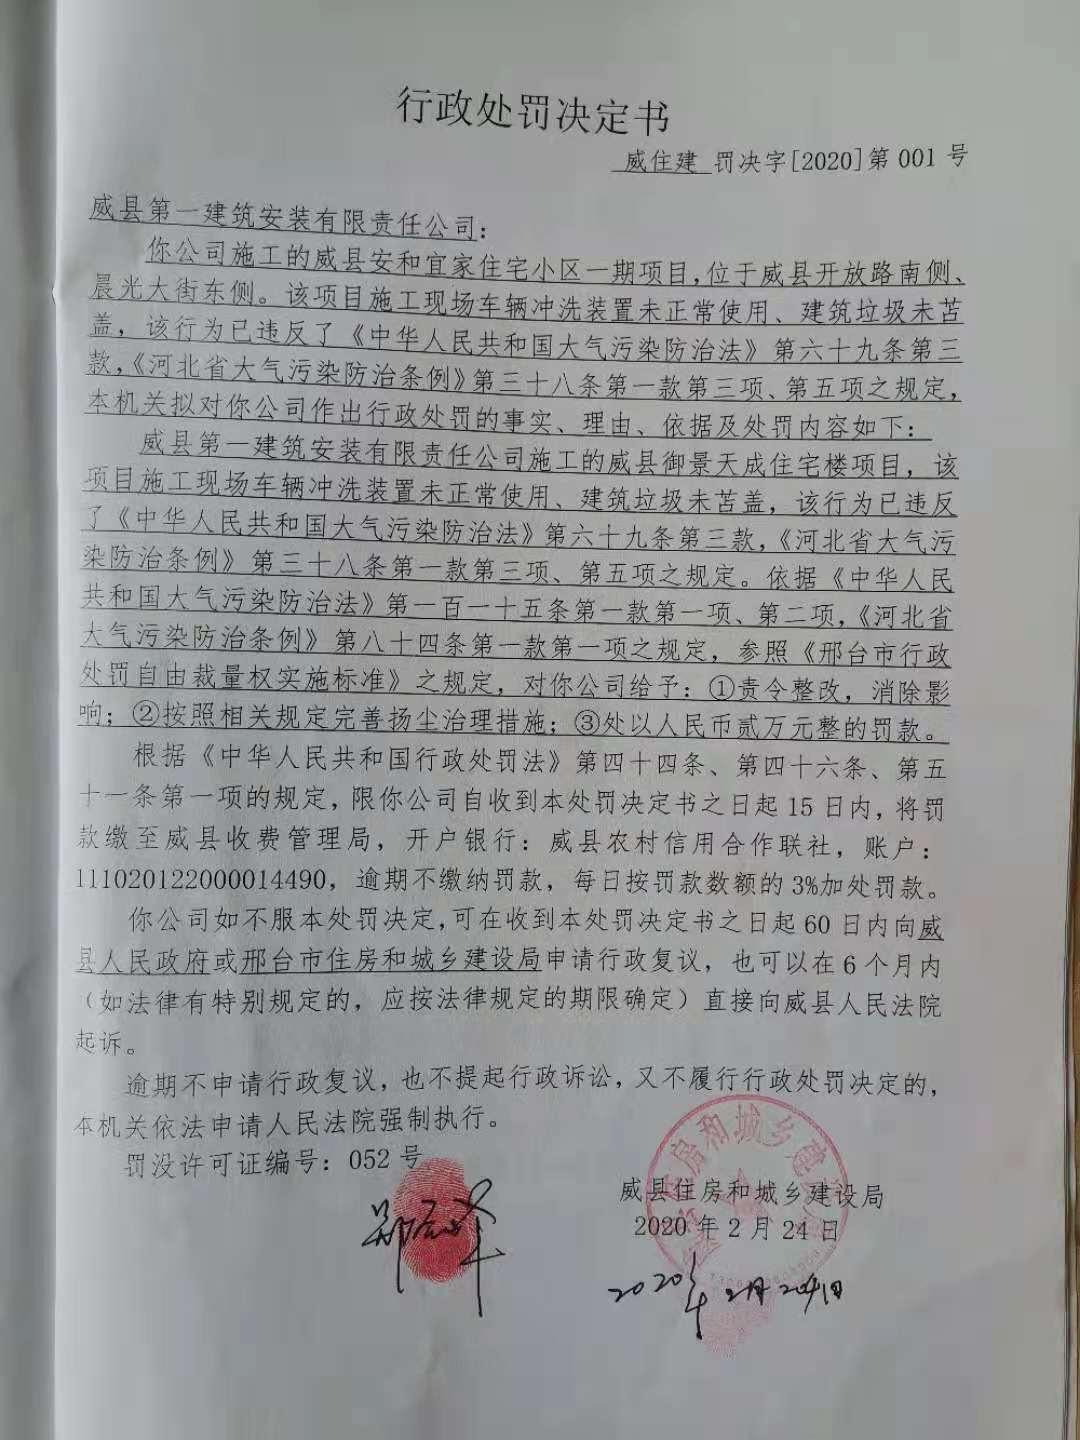 行政处罚决定书
威住建 罚决字[2020]第 001 号
威县第一建筑安装有限责任公司：
你公司施工的威县安和宜家住宅小区一期项目，位于威县开放路南侧、
晨光大街东侧。该项目施工现场车辆冲洗装置未正常使用、建筑垃圾未苫
盖，该行为已违反了《中华人民共和国大气污染防治法》第六十九条第三
款，《河北省大气污染防治条例》第三十八条第一款第三项、第五项之规定，
本机关拟对你公司作出行政处罚的事实、理由、依据及处罚内容如下：
威县第一建筑安装有限责任公司施工的威县御景天成住宅楼项目，该
项目施工现场车辆冲洗装置未正常使用、建筑垃圾未苫盖，该行为已违反
了《中华人民共和国大气污染防治法》第六十九条第三款，《河北省大气污
染防治条例》第三十八条第一款第三项、第五项之规定。依据《中华人民
共和国大气污染防治法》第一百一十五条第一款第一项、第二项，《河北省
大气污染防治条例》第八十四条第一款第一项之规定，参照《邢台市行政
处罚自由裁量权实施标准》之规定，对你公司给予：①责令整改，消除影
响；②按照相关规定完善扬尘治理措施；③处以人民币贰万元整的罚款。
根据《中华人民共和国行政处罚法》第四十四条、第四十六条、第五
十一条第一项的规定，限你公司自收到本处罚决定书之日起 15 日内，将罚
款缴至威县收费管理局，开户银行：威县农村信用合作联社，账户：
111020122000014490，逾期不缴纳罚款，每日按罚款数额的 3%加处罚款。
你公司如不服本处罚决定，可在收到本处罚决定书之日起 60 日内向威
县人民政府或邢台市住房和城乡建设局申请行政复议，也可以在 6 个月内
（如法律有特别规定的，应按法律规定的期限确定）直接向威县人民法院
起诉。
逾期不申请行政复议，也不提起行政诉讼，又不履行行政处罚决定的，
本机关依法申请人民法院强制执行。
罚没许可证编号：052 号
威县住房和城乡建设局
2020 年 2 月 24 日
2020年2月24日